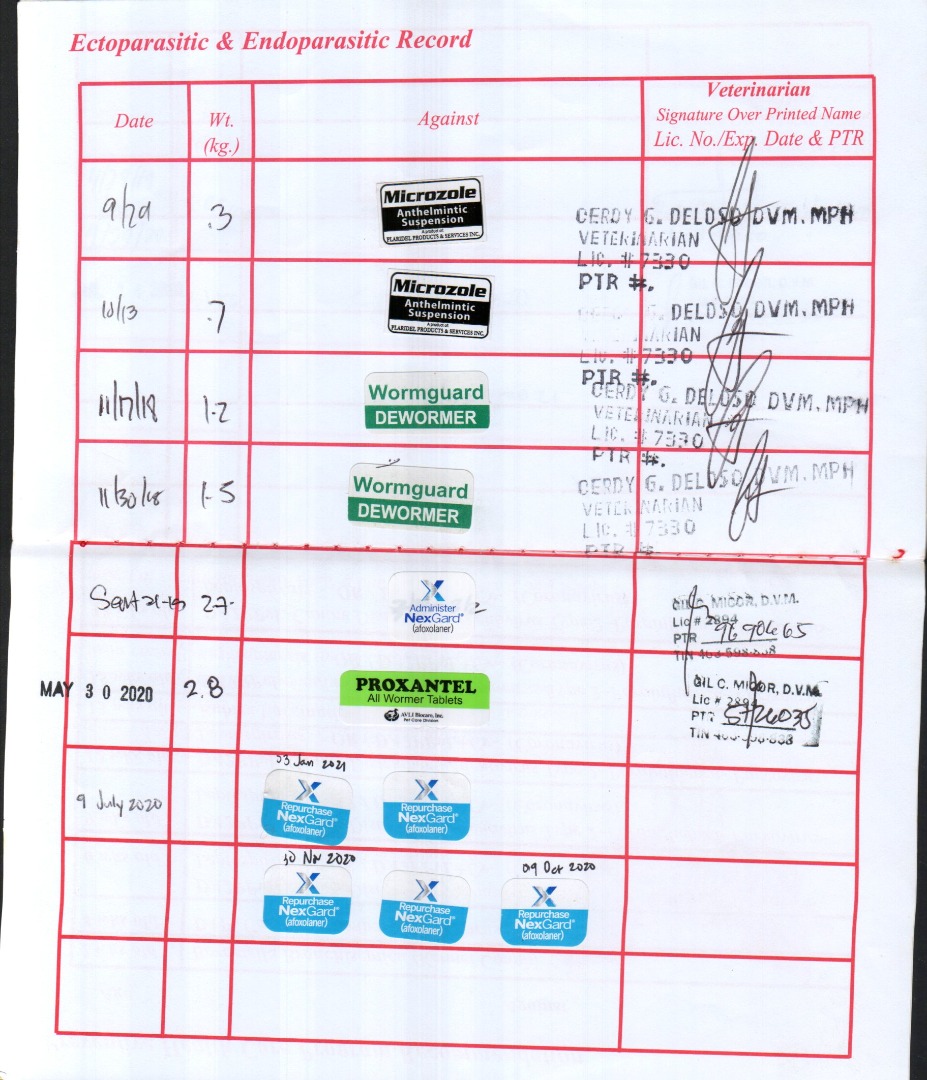 Ectoparasitic & Endoparasitic Record
Date
Wt.
(kg.)
Against
Veterinarian
Signature Over Printed Name
Lic. No./Exp. Date & PTR
9/29
.3
Microzole
Anthelmintic
Suspension
A product of:
PLARIDEL PRODUCTS & SERVICES INC.
CERDY G. DELOSO, DVM, MPH
VETERINARIAN
LIC. # 7330
PTR #.
10/13
.7
Microzole
Anthelmintic
Suspension
A product of:
PLARIDEL PRODUCTS & SERVICES INC.
DELOSO, DVM, MPH
LIC. # 7330
PTR #.
11/17/18
1.2
Wormguard
DEWORMER
CERDY G. DELOSO DVM, MPH
VETERINARIAN
LIC. # 7330
PTR #.
11/30/18
1.5
Wormguard
DEWORMER
CERDY G. DELOSO, DVM, MPH
VETERINARIAN
LIC. # 7330
PTR #
Sept 21-19
2.7
Administer
NexGard®
(afoxolaner)
GIL C. MICOR, D.V.M.
Lic # 2894
PTR 9690465
MAY 30 2020
2.8
PROXANTEL
All Wormer Tablets
AVLI Biocare, Inc.
Pet Care Division
GIL C. MICOR, D.V.M.
Lic # 2894
PTR 5726035
9 July 2020
03 Jan 2021
Repurchase
NexGard®
(afoxolaner)
Repurchase
NexGard®
(afoxolaner)
10 Nov 2020
Repurchase
NexGard®
(afoxolaner)
Repurchase
NexGard®
(afoxolaner)
09 Oct 2020
Repurchase
NexGard®
(afoxolaner)